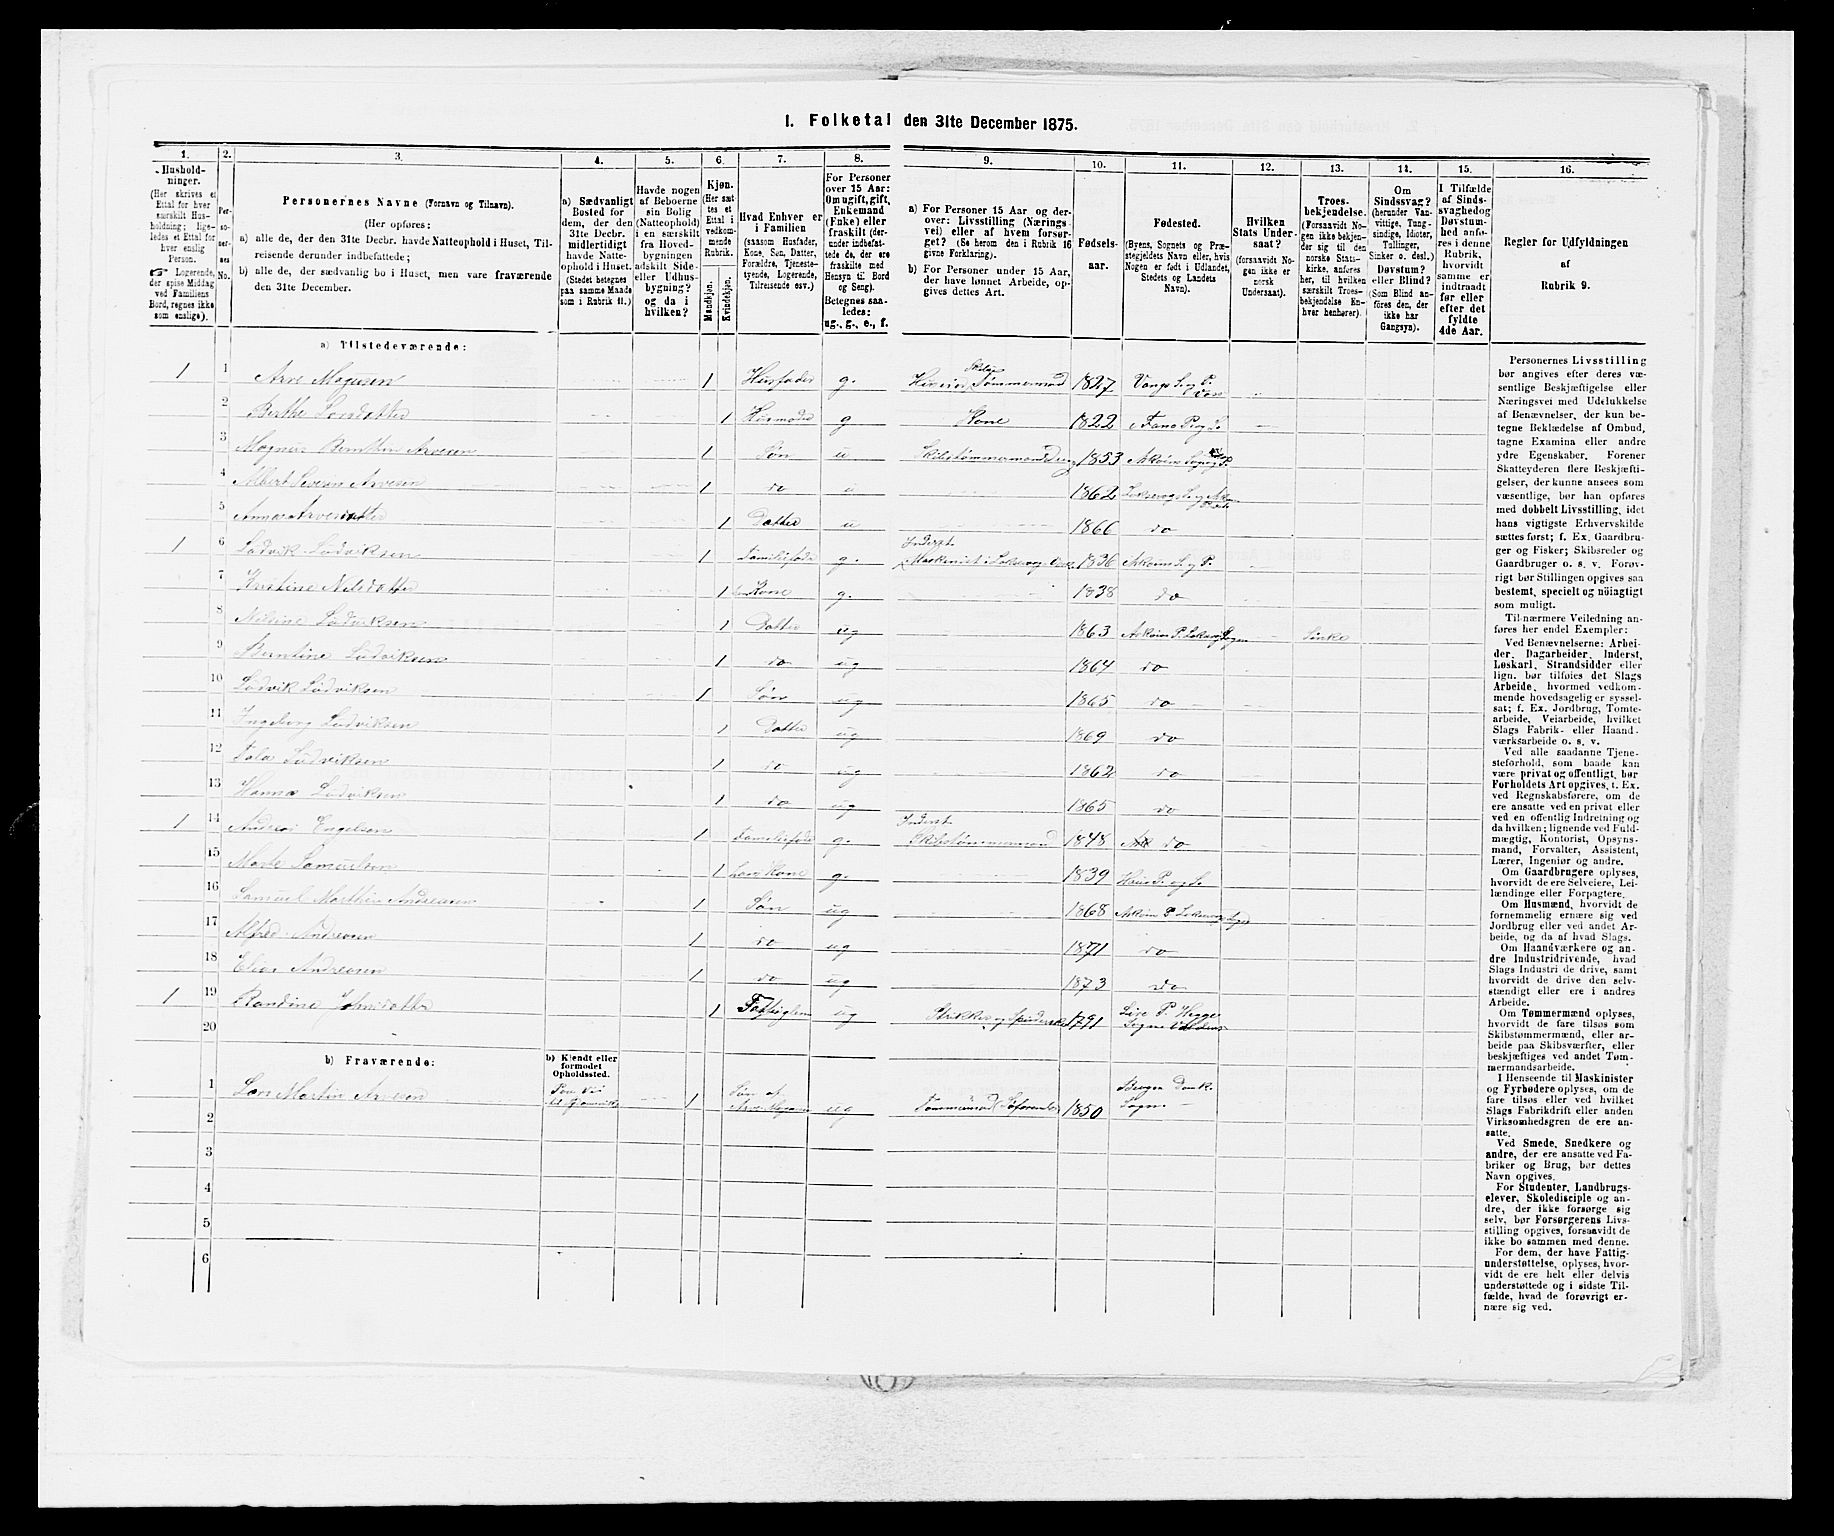 1. Folketal den 31te December 1875.
1. 2. 3. 4. 5. 6. 7. 8. 9. 10. 11. 12. 13. 14. 15. 16.
Hushold-
ninger.
(Her skrives et
Ettal for hver
særskilt Hus-
holdning; lige-
ledes et Ettal for
hver enslig
Person.
☞ Logerende,
der spise Middag
ved Familiens
Bord, regnes ikke
som enslige).
Per-
so-
ner-
nes
No.
Personernes Navne (Fornavn og Tilnavn).
(Her opføres:
a) alle de, der den 31te Decbr. havde Natteophold i Huset, Til-
reisende derunder indbefattede;
b) alle de, der sædvanlig bo i Huset, men vare fraværende
den 31te December.
a) Sædvanligt
Bosted for
dem, der den
31te Decbr.
midlertidigt
havde Natte-
ophold i Huset.
(Stedet betegnes
paa samme Maade
som i Rubrik 11.)
Havde nogen
af Beboerne
sin Bolig
(Natteophold)
i en særskilt
fra Hoved-
bygningen
adskilt Side-
eller Udhus-
bygning?
og da i
hvilken?
Kjøn.
(Her sæt-
tes et
Ettal i
vedkom-
mende
Rubrik.
Mandkjøn.
Kvindekjøn.
Hvad Enhver er
i Familien
(saasom Husfader,
Kone, Søn, Datter,
Forældre, Tjeneste-
tyende, Logerende,
Tilreisende osv.)
For Personer
over 15 Aar:
Om ugift, gift,
Enkemand
(Enke) eller
fraskilt (der-
under indbefat-
tede de, der ere
fraskilte med
Hensyn til Bord
og Seng).
Betegnes saa-
ledes:
ug., g., e., f.
a) For Personer 15 Aar og der-
over: Livsstilling (Nærings-
vei) eller af hvem forsør-
get? (Se herom den i Rubrik 16
givne Forklaring).
b) For Personer under 15 Aar,
der have lønnet Arbeide, op-
gives dettes Art.
Fødsels-
aar.
Fødested.
(Byens, Sognets og Præ-
stegjeldets Navn eller, hvis
Nogen er født i Udlandet,
Stedets og Landets
Navn).
Hvilken
Stats Under-
saat?
(forsaavidt No-
gen ikke er
norsk
Undersaat).
Troes-
bekjendelse.
(Forsaavidt No-
gen ikke bekjen-
der sig til den
norske Stats-
kirke, anføres
her, til hvilken
særskilt Troes-
bekjendelse En-
hver henhører).
Om
Sindssvag?
(herunder Van-
vittige, Tung-
sindige, Idioter,
Tullinger,
Sinker o. desl.)
Døvstum?
eller Blind?
(Som Blind an-
føres den, der
ikke har
Gangsyn).
I Tilfælde
af Sinds-
svaghed og
Døvstum-
hed anfø-
res i denne
Rubrik,
hvorvidt
samme er
indtraadt
før eller
efter det
fyldte
4de Aar.
Regler for Udfyldningen
af
Rubrik 9.
a) Tilstedeværende:
1 1 Arve Mogensen 1 Husfader g. Skibs Tømmermand 1827 Vangs
2 Berthe Larsdatter 1 Husmoder g Kone 1822 Fane
3 Mognus Arvesen 1 Søn u Skibstømmermand 1853 Askøens
4 Albert Severin Arvesen 1 do u 1862
5 Anna Arvesdatter 1 Datter u 1866 do
1 6 Ludvik Ludviksen 1 Familiefader g. Inderst Maskinist i Laksevog 1836 Askøens S. og P.
7 Kristine Nilsdatter 1 Kone g. 1838 do
8 Nilsine Ludviksen 1 Datter ug 1863 Askøens P. Laksevog Sogn Sinke
9 Berntine Ludviksen 1 do ug 1864 do
10 Ludvik Ludviksen 1 Søn ug 1865 do
11 Ingeborg Ludviksen 1 Datter ug 1869 do
12 Ludviksen 1 do ug 1862 do
13 Hanna Ludviksen 1 do ug 1865 do
1 14 Andreas Engelsen 1 Familiefader g. Inderst Skibstømmermand 1848 do
15 Marte Samuelsen 1 Kone g. 1839 Haus P. og S.
16 Samuel Andreasen 1 Søn ug 1868 Askøens P. Laksevog Sogn
17 Alfred Andreasen 1 do ug 1871 do
18 Elias Andreasen 1 do ug 1873 do
1 19 Randine Johnsdatter 1 Fattiglem ug Strikker og Spinderske 1791
20
b) Fraværende: b) Kjendt eller
formodet
Opholdssted.
1 Lars Martin Arvesen 1 Søn af ug Tømmermand 1850 Bergen Domk. Sogn
2
3
4
5
6
Personernes Livsstilling
bør angives efter deres væ-
sentlige Beskjæftigelse eller
Næringsvei med Udelukkelse
af Benævnelser, der kun be-
tegne Beklædelse af Ombud,
tagne Examina eller andre
ydre Egenskaber. Forener
Skatteyderen flere Beskjæfti-
gelser, der kunne ansees som
væsentlige, bør han opføres
med dobbelt Livsstilling, idet
hans vigtigste Erhvervskilde
sættes først; f. Ex. Gaardbru-
ger og Fisker; Skibsreder og
Gaardbruger o. s. v. Forøv-
rigt bør Stillingen opgives saa
bestemt, specielt og nöiagtigt
som muligt.
Til nærmere Veiledning an-
føres her endel Exempler:
Ved Benævnelserne: Arbei-
der, Dagarbeider, Inderst,
Løskarl, Strandsidder eller
lign. bør tilføies det Slags
Arbeide, hvormed vedkom-
mende hovedsagelig er syssel-
sat; f. Ex. Jordbrug, Tomte-
arbeide, Veiarbeide, hvilket
Slags Fabrik- eller Haand-
værksarbeide o. s. v.
Ved alle saadanne Tjene-
steforhold, som baade kan
være privat og offentligt, bør
Forholdets Art opgives, t. Ex.
ved Regnskabsførere, om de
ere ansatte ved en privat eller
ved en offentlig Indretning og
da hvilken; lignende ved Fuld-
mægtig, Kontorist, Opsyns-
mand, Forvalter, Assistent,
Lærer, Ingeniør og andre.
Om Gaardbrugere oplyses,
hvorvidt de ere Selveiere, Lei-
lændinge eller Forpagtere.
Om Husmænd, hvorvidt de
fornemmelig ernære sig ved
Jordbrug eller ved andet Ar-
beide, og da af hvad Slags.
Om Haandværkere og an-
dre Industridrivende, hvad
Slags Industri de drive, samt
hvorvidt de drive den selv-
stændigt eller ere i andres
Arbeide.
Om Tømmermænd oplyses,
hvorvidt de fare tilsøs som
Skibstømmermænd, eller ar-
beide paa Skibsværfter, eller
beskjæftiges ved andet Tøm-
mermandsarbeide.
I Henseende til Maskinister
og Fyrbødere oplyses, om de
fare tilsøs eller ved hvilket
Slags Fabrikdrift eller anden
Virksomhedsgren de ere an-
satte.
Ved Smede, Snedkere og
andre, der ere ansatte ved Fa-
briker og Brug, bør dettes
Navn opgives.
For Studenter, Landbrugs-
elever, Skoledisciple og an-
dre, der ikke forsørge sig
selv, bør Forsørgerens Livs-
stilling opgives, forsaavidt de
ikke bo sammen med denne.
For dem, der have Fattig-
understøttelse, oplyses, hvor-
vidt de ere helt eller delvis
understøttede og i sidste Til-
fælde, hvad de forøvrigt er-
nære sig ved.